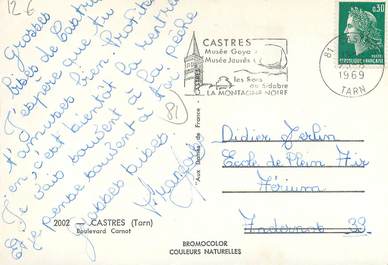 12 F
Grosses
bises de Castres
J'espère que tu
t'amuses bien. Profite
en, c'est bientôt la rentrée
Je vais souvent à la pêche
Et je pense souvent à toi
Grosses bises
81
CASTRES
Musée Goya
Musée Jaurès
les Bois
du Sidobre
LA MONTAGNE NOIRE
CASTRES
81
1969
TARN
0,30
REPUBLIQUE FRANÇAISE
"Aux Dames de France"
Didier
Ecole de Plein Air
Andernos 33
2002 — CASTRES (Tarn)
Boulevard Carnot
BROMOCOLOR
COULEURS NATURELLES